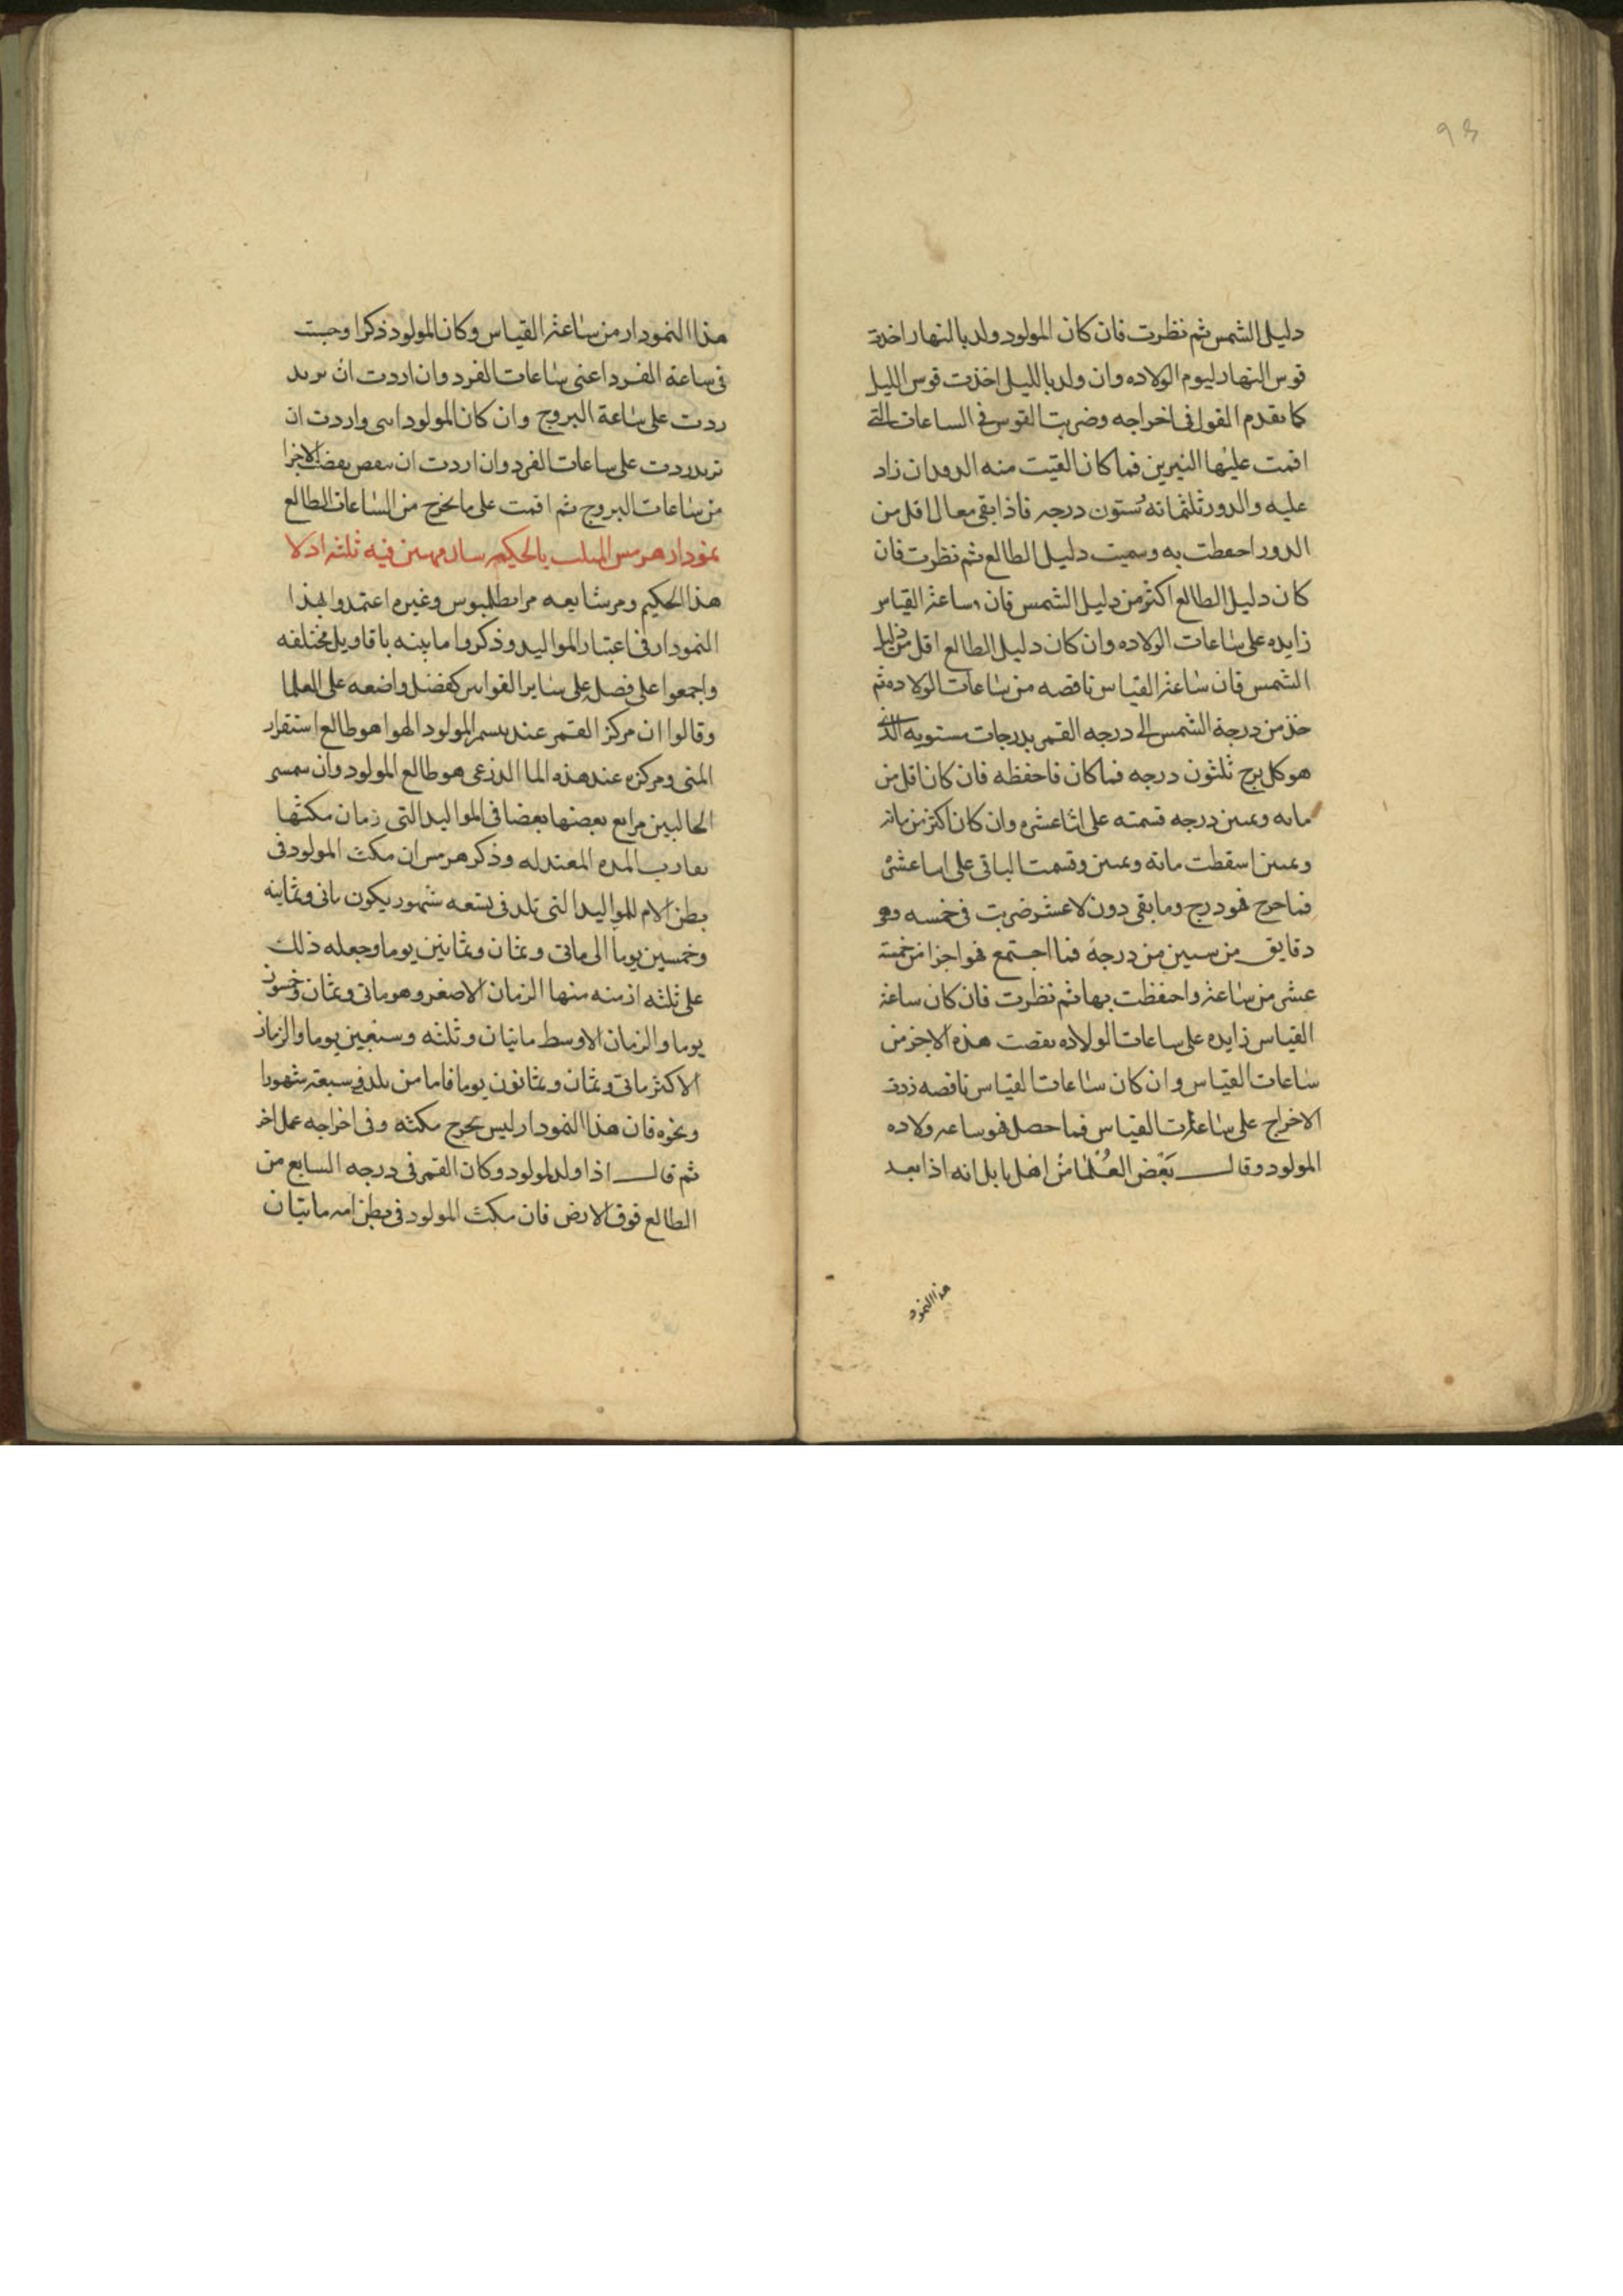 دليل الشمس ثم نظرت فان كان المولود ولد بالنهار اخذت
قوس النهار ليوم الولاده وان ولد بالليل اخذت قوس الليل
كما تقدم القول فى اخراجه وضربت القوس فى الساعات التى
اقمت عليها النيرين فما كان القيت منه الدور ان زاد
عليه والدور ثلثمائه وستون درجه فاذا بقى معك اقل من
الدور احتفظت به وسميت دليل الطالع ثم نظرت فان
كان دليل الطالع اكثر من دليل الشمس فان ساعة القياس
زايده على ساعات الولاده وان كان دليل الطالع اقل من دليل
الشمس فان ساعة القياس ناقصه من ساعات الولاده ثم
خذ من درجة الشمس الى درجه القمر بدرجات مستويه الذى
هو كل برج ثلثون درجه فما كان فاحفظه فان كان اقل من
مايه وثمنين درجه قسمته على اثنا عشره وان كان اكثر من مائه
وثمنين اسقطت مائه وثمنين وقسمت الباقى على اثنا عشره
فما خرج فهو درج وما بقى دون الاعشر ضربت فى خمسه وهو
دقايق من ستين من درجة فما اجتمع فهو اجزا من خمسة
عشر من ساعة واحتفظت بها ثم نظرت فان كان ساعة
القياس زايده على ساعات الولاده نقصت هذه الاجز من
ساعات القياس وان كان ساعات القياس ناقصه زدت
الاخراج على ساعات القياس فما حصل فهو ساعه ولاده
المولود وقال بعض العلما من اهل بابل انه اذا بعد
هذا النمود
هذا النمودار من ساعة القياس وكان المولود ذكرا وجبت
فى ساعة الفرد اعنى ساعات الفرد وان اردت ان تريد
ردت على ساعة البروج وان كان المولود انثى واردت ان
تريد ردت على ساعات الفرد وان اردت ان تنقص نقصت الاجزا
من ساعات البروج ثم اقمت على ما يخرج من الساعات الطالع
نمودار هرمس الملقب بالحكيم فيه ثلثه ادلا
هذا الحكيم ومن شايعه من بطلميوس وغيره اعتمدوا بهذا
النمودار فى اعتبار المواليد وذكروا ما بينه باقاويل مختلفه
واجمعوا على فضل على ساير القواس كفضل واضعه على العلما
وقالوا ان مركز القمر عند المولود الهوا هو طالع استقرار
المنى ومركزه عند هذه الما الدزعى هو طالع المولود وان
الحالبين مرابع بعضها بعضا فى المواليد التى زمان مكثها
تقارب المده المعتدله وذكر هرمس ان مكث المولود فى
بطن الام للمواليد التى تلد فى تسعه شهور يكون ماتى وثمانيه
وخمسين يوما الى ماتى وثمان وثمانين يوما وجعله ذلك
على ثلثه ازمنه منها الزمان الاصغر وهو ماتى وثمان وخمسون
يوما والزمان الاوسط مايتان وثلثه وسبعين يوما والزمان
الاكثر ماتى وثمان وثمانون يوما فاما من يلد فى سبعة شهورا
ونحوه فان هذا النمودار ليس يخرج مكثه وفى اخراجه عمل اخر
ثم قال اذا ولد المولود وكان القمر فى درجه السابع من
الطالع فوق الارض فان مكث المولود فى بطن امه مايتان